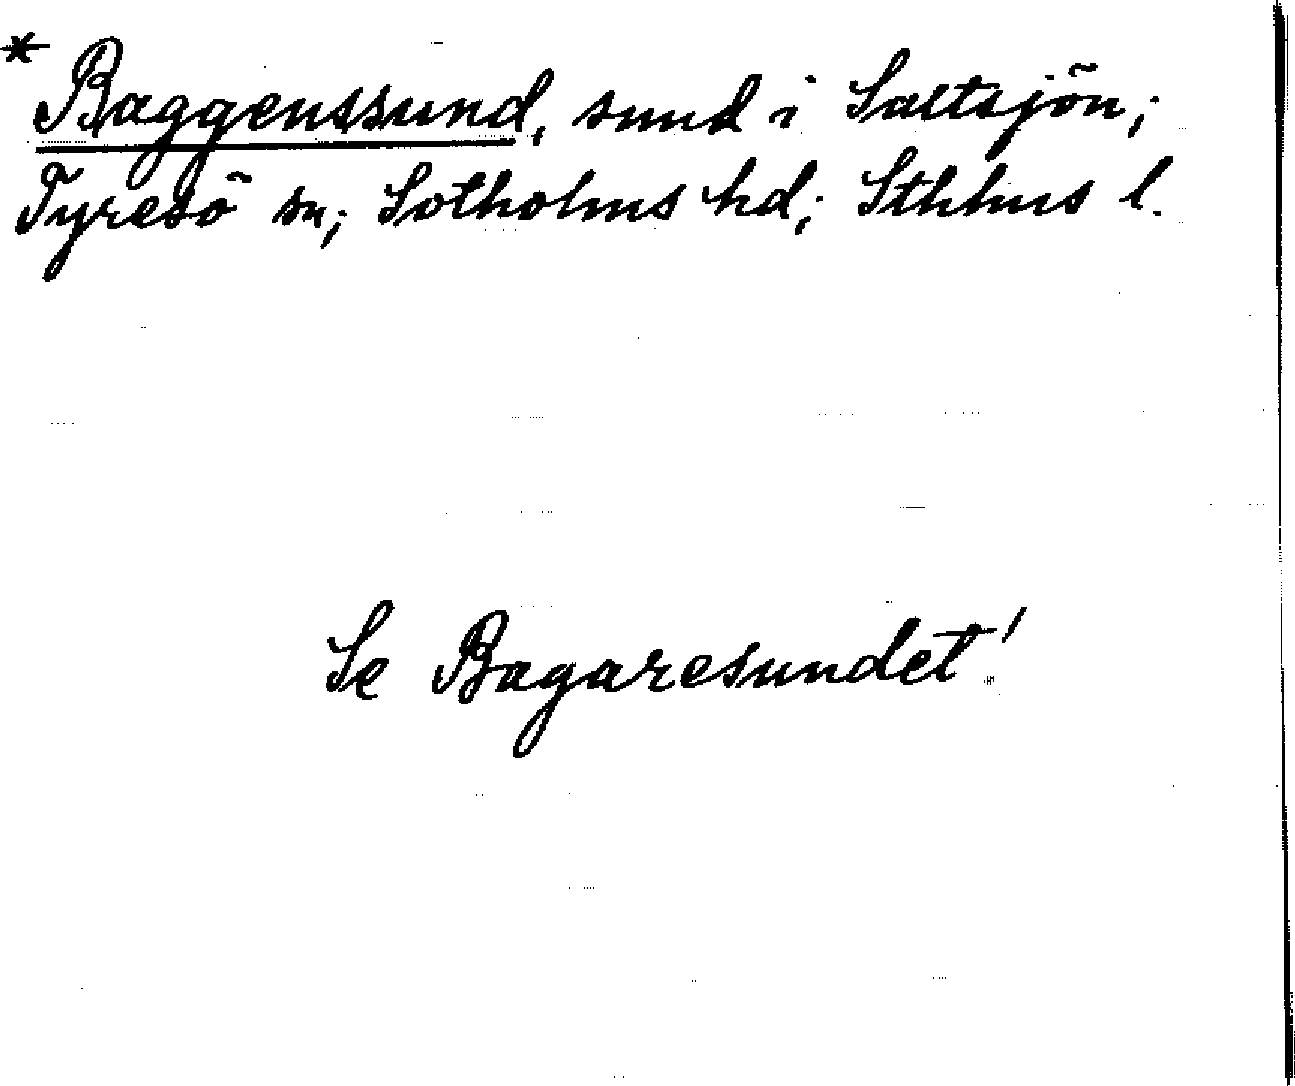 * Baggenssund, sund i Saltsjön;
Tyresö sn; Sotholms hd; Sthlms l.
Se Bagaresundet!